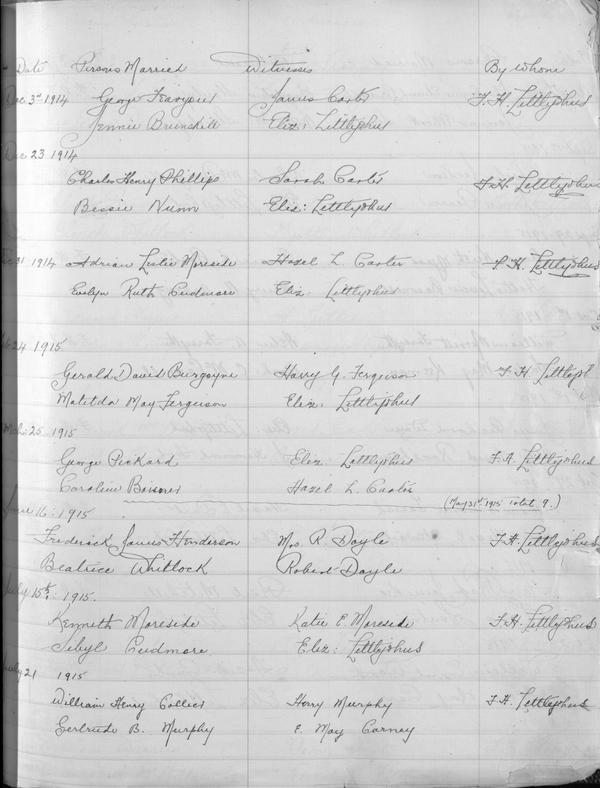 Date Persons Married Witnesses By Whom
Dec 3rd 1914 George James Carter F. H. Littlejohns
Jennie Eliz: Littlejohns
Dec 23 1914
Charles Henry Phillips Sarah Carter F. H. Littlejohns
Bessie Nunn Eliz: Littlejohns
31 1914 Adrian Leslie Moreside Hazel L. Carter F. H. Littlejohns
Evelyn Ruth Cudmore Eliz. Littlejohns
24 1915.
Gerald David Burgoyne Harry G. Ferguson F. H.
Matilda May Ferguson Eliz: Littlejohns
25 1915
George Pickard Eliz. Littlejohns F. H. Littlejohns
Caroline Hazel L. Carter
(May 31st 1915 total 9.)
June 16. 1915
Frederick James Henderson Mrs R Doyle F. H. Littlejohns
Beatrice Whitlock Robert Doyle
July 15th 1915.
Kenneth Moreside Katie E. Moreside F. H. Littlejohns
Sibyl Cudmore Eliz: Littlejohns
July 21 1915
William Henry Collier Harry Murphy F. H. Littlejohns
Gertrude B. Murphy E. May Carney